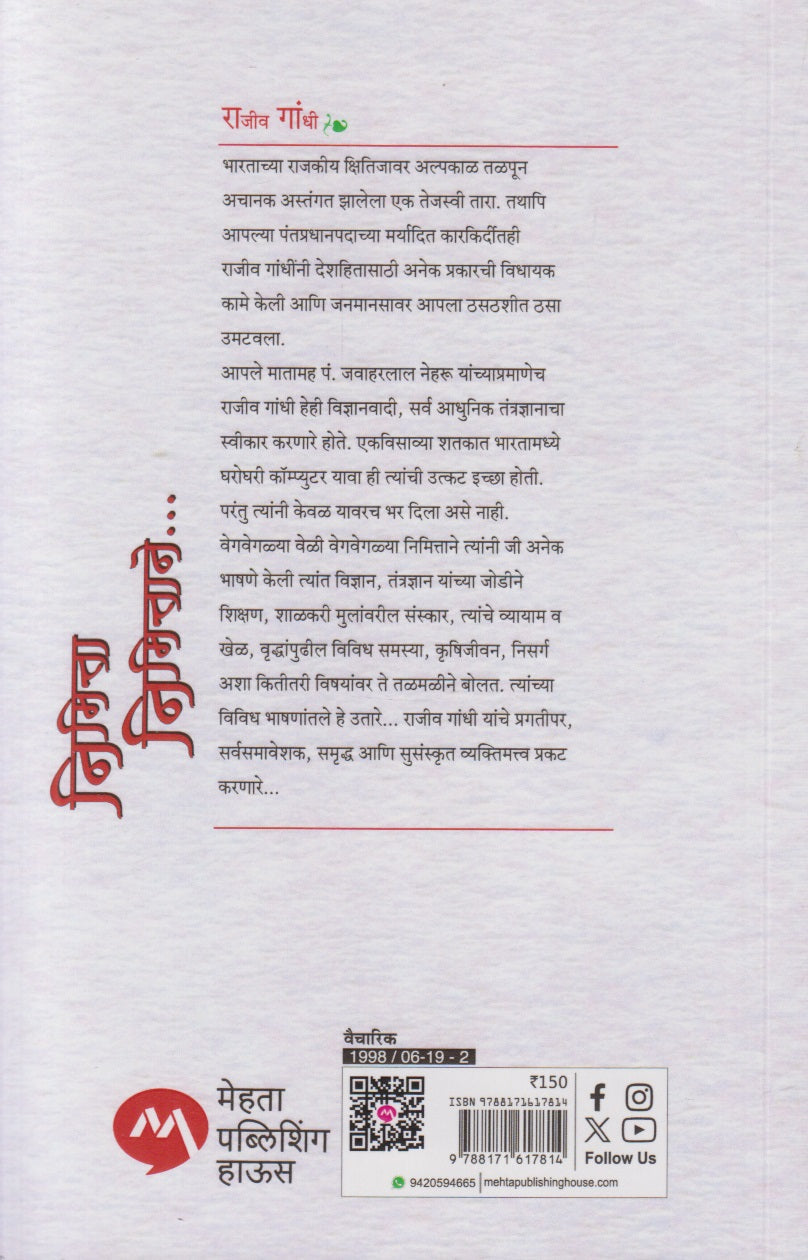 राजीव गांधी
भारताच्या राजकीय क्षितिजावर अल्पकाळ तळपून
अचानक अस्तंगत झालेला एक तेजस्वी तारा. तथापि
आपल्या पंतप्रधानपदाच्या मर्यादित कारकिर्दीतही
राजीव गांधींनी देशहितासाठी अनेक प्रकारची विधायक
कामे केली आणि जनमानसावर आपला ठसठशीत ठसा
उमटवला.
आपले मातामह पं. जवाहरलाल नेहरू यांच्याप्रमाणेच
राजीव गांधी हेही विज्ञानवादी, सर्व आधुनिक तंत्रज्ञानाचा
स्वीकार करणारे होते. एकविसाव्या शतकात भारतामध्ये
घरोघरी कॉम्प्युटर यावा ही त्यांची उत्कट इच्छा होती.
परंतु त्यांनी केवळ यावरच भर दिला असे नाही.
वेगवेगळ्या वेळी वेगवेगळ्या निमित्ताने त्यांनी जी अनेक
भाषणे केली त्यांत विज्ञान, तंत्रज्ञान यांच्या जोडीने
शिक्षण, शाळकरी मुलांवरील संस्कार, त्यांचे व्यायाम व
खेळ, वृद्धांपुढील विविध समस्या, कृषिजीवन, निसर्ग
अशा कितीतरी विषयांवर ते तळमळीने बोलत. त्यांच्या
विविध भाषणांतले हे उतारे... राजीव गांधी यांचे प्रगतीपर,
सर्वसमावेशक, समृद्ध आणि सुसंस्कृत व्यक्तिमत्त्व प्रकट
करणारे...
निमित्त
निमित्ताने...
वैचारिक
1998 / 06-19 - 2
₹150
ISBN 9788171617814
9 788171 617814
Follow Us
9420594665 | mehtapublishinghouse.com
मेहता
पब्लिशिंग
हाऊस